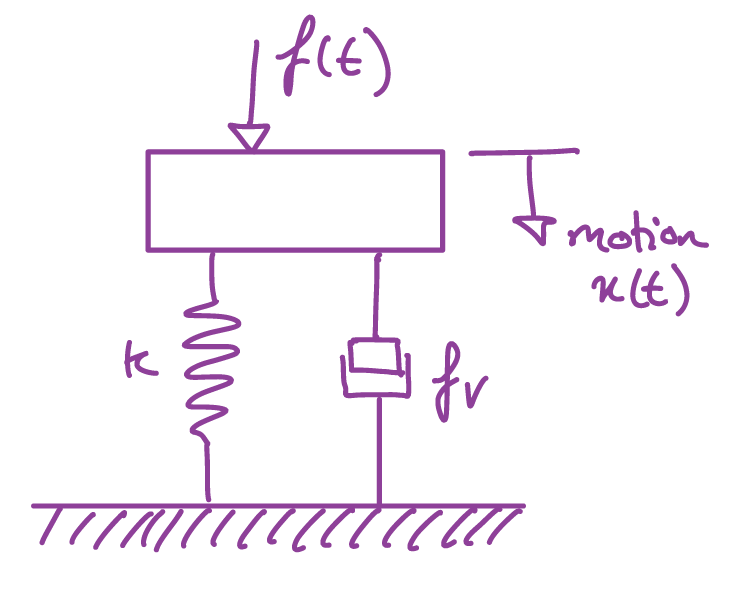 f(t)
motion
x(t)
k
fv